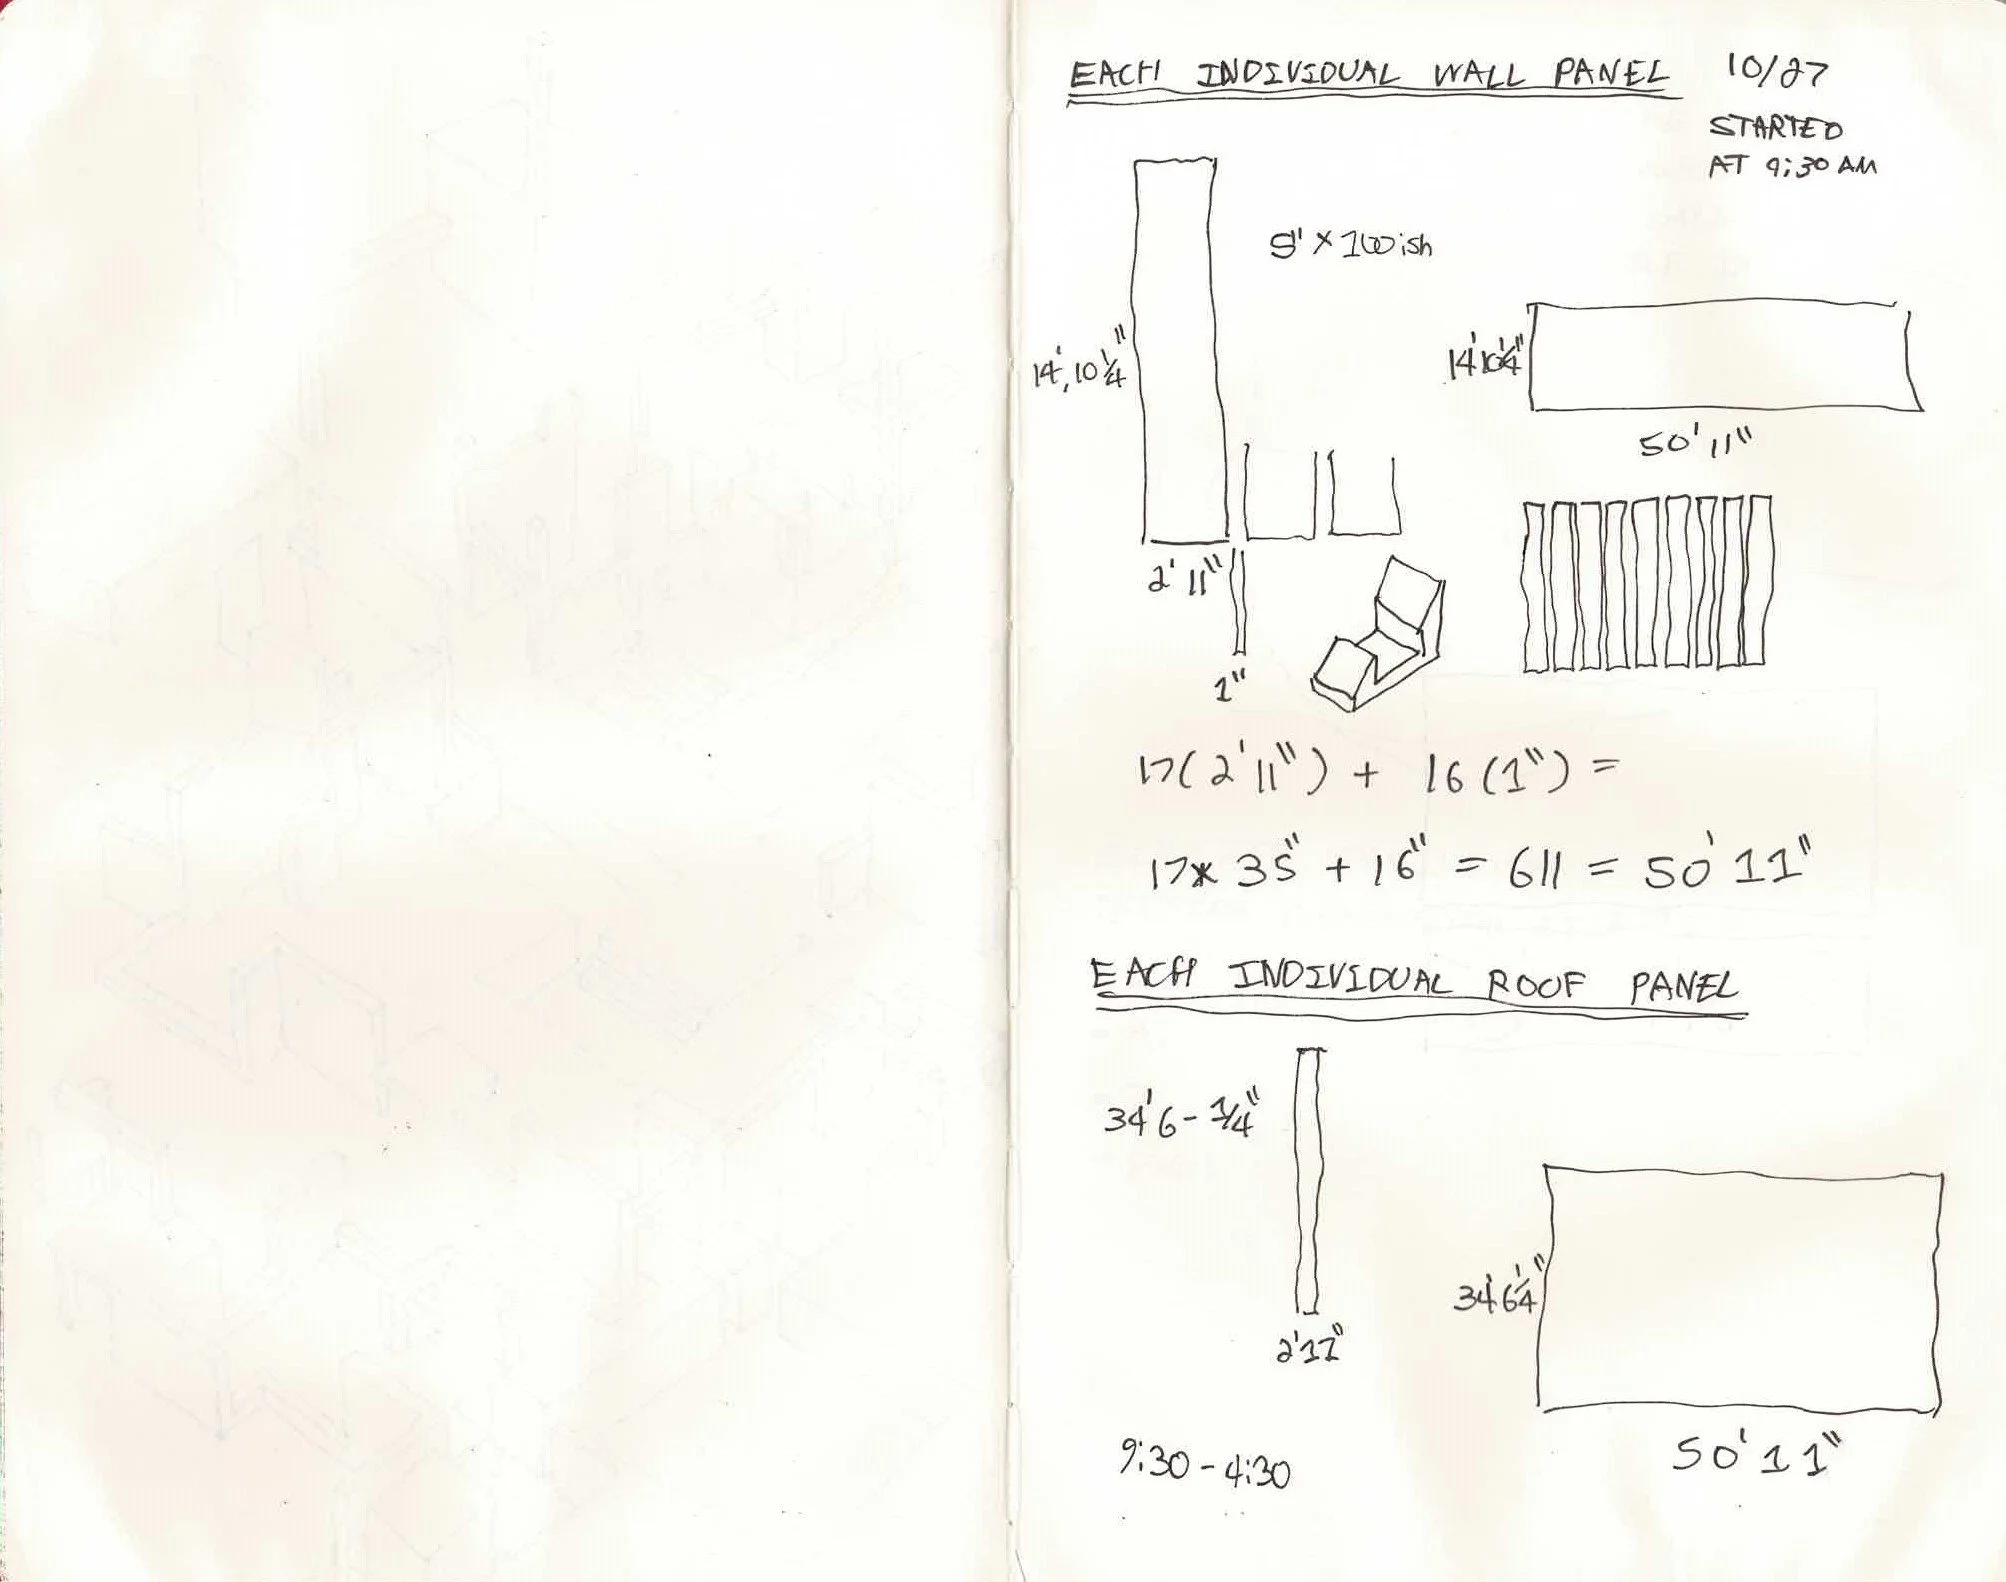 EACH INDIVIDUAL WALL PANEL
10/27
STARTED
AT 9:30 AM
x 100ish
14', 10 1/4"
14' 10 1/4"
50' 11"
2' 11"
1"
17(2'11") + 16(1") =
17* 35" + 16" = 611 = 50' 11"
EACH INDIVIDUAL ROOF PANEL
34' 6 - 1/4"
2' 11"
34' 6 1/4"
50' 11"
9:30 - 4:30